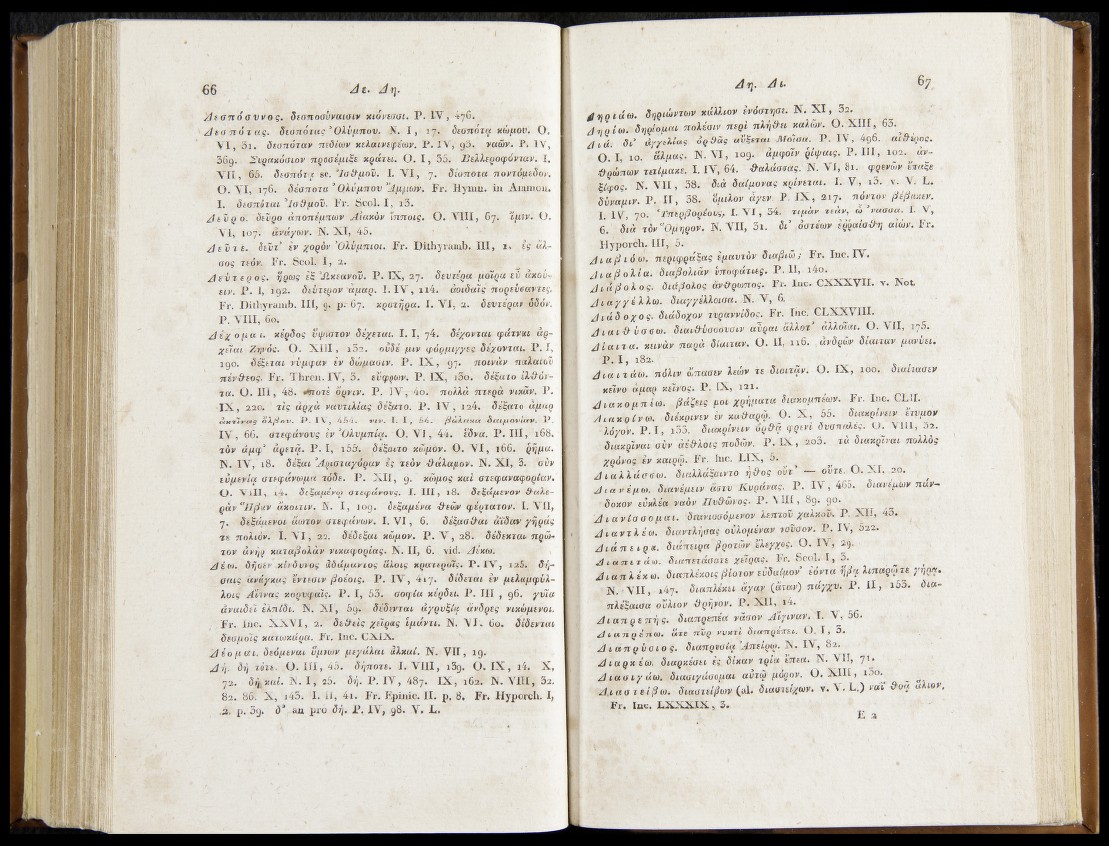 66 Δε. Δη.
Δεσπόσυνος. δεσποσύναισιν κιόνεσσι. P. IV, 476.
Δεσπότας. δεσπότας Ὀλύμπου. N. I, 17. δεσπότᾳ κώμου. O.
VI, 31. δεσπόταν πεδίων κελαινεφέων. P. IV, 93. ναῶν. P. IV,
369. Συρακόσιον προσέμιξε κράτει. O. I, 35. Βελλεροφόνταν. I.
VII, 65. δεσπότᾳ sc. Ἰσθμοῦ. I. VI, 7. δέσποτα ποντόμεδον.
O. VI, 176. δέσποτα Ὀλύμπου Ἄμμων. Fr. Hymn. in Ammon.
1. δεσπόται Ἰσθμοῦ. Fr. Scol. I, 13.
Δεῦρο. δεῦρο ἀποπέμπων Αἰακὸν ἵπποις. O. VIII, 67. ἴμεν. O.
VI, 107. ἀνάγων. N. XI, 45.
Δεῦτε. δεῦτ’ ἐν χορὸν Ὀλύμπιοι. Fr. Dithyramb. III, 1. ἐς ἄλ-
σος τεόν. Fr. Scol. I, 2.
Δεύτερος. ἥρως ἐξ Ὠκεανοῦ. P. IX, 27. δευτέρα μοῖρα εὖ ἀκού-
ειν. P. I, 192. δεύτερον ἆμαρ. I. IV, 114. ἀοιδαῖς πορεύσαντες.
Fr. Dithyramb. III, 9. p. 67. κρατῆρα. I. VI, 2. δευτέραν ὁδόν.
P. VIII, 60.
Δέχομαι. κέρδος ὕψιστον δέχεται. I. I, 74. δέχονται φάτναι ἀρ-
χεῖαι Ζηνός. O. XIII, 132. οὐδέ μιν φόρμιγγες δέχονται. P. I,
190. δέξεται νύμφαν ἐν δώμασιν. P. IX, 97. ποινὰν παλαιοῦ
πένθεος. Fr. Thren. IV, 3. εὔφρων. P. IX, 130. δέξατο ἐλθόν-
τα. O. III, 48. ποτὲ ὄρνιν. P. IV, 40. πολλὰ πτερὰ νικᾶν. P.
IX, 220. τίς ἀρχὰ ναυτιλίας δέξατο. P. IV, 124. δέξατο ἆμαρ
ἀκτῖνας ὄλβου. P. IV, 454. νιν. I. I, 54. βώλακα δαιμονίαν. P.
IV, 66. στεφάνους ἐν Ὀλυμπίᾳ. O. VI, 44. ἕδνα. P. III, 168.
τὸν ἀμφ’ ἀρετᾷ. P. I, 153. δέξαιτο κῶμον. O. VI, 166. ῥῆμα.
N. IV, 18. δέξαι Ἀρισταγόραν ἐς τεὸν θάλαμον. N. XI, 3. σὺν
εὐμενίᾳ στεφάνωμα τόδε. P. XII, 9. κῶμος καὶ στεφαναφορίαν.
O. VIII, 14. δεξαμένῳ στεφάνους. I. III, 18. δεξάμενον θαλε-
ρὰν Ἥβαν ἄκοιτιν. N. I, 109. δεξαμένα θεῶν φέρτατον. I. VII,
7. δεξάμενοι ἄωτον στεφάνων. I. VI, 6. δέξασθαι ἀΐδαν γῆράς
τε πολιόν. I. VI, 22. δέδεξαι κῶμον. P. V, 28. δέδεκται πρῶ-
τον ἀνὴρ καταβολὰν νικαφορίας. N. II, 6. vid. Δέκω.
Δέω. δῆσεν κίνδυνος ἀδάμαντος ἅλοις κρατεροῖς. P. IV, 125. δή-
σαις ἀνάγκας ἔντεσιν βοέοις. P. IV, 417. δέδεται ἐν μελαμφύλ-
λοις Αἴτνας κορυφαῖς. P. I, 53. σοφία κέρδει. P. III, 96. γυῖα
ἀναιδεῖ ἐλπίδι. N. XI, 59. δέδενται ἀγρυξίᾳ ἄνδρες νικώμενοι.
Fr. Inc. XXVI, 2. δεθεὶς χεῖρας ἱμάντι. N. VI. 60. δέδενται
δεσμοῖς κατωκάρα. Fr. Inc. CXIX.
Δέομαι. δεόμεναι ὕμνων μεγάλαι ἀλκαί. N. VII, 19.
Δή. δὴ τότε. O. III, 45. δήποτε. I. VIII, 139. O. IX, 14. X,
72. δὴ καί. N. I, 25. δή. P. IV, 487. IX, 162. N. VIII, 32.
82. 86. X, 143. I. II, 41. Fr. Epinic. II. p. 8. Fr. Hyporch. I,
2. p. 39. δ’ an pro δή. P. IV, 98. V. L.
Δη. Δι. 67
Δηριάω. δηριώντων κάλλιον ἐνόστησε. N. XI, 32.
Δηρίω. δηρίομαι πολέσιν περὶ πλήθει καλῶν. O. XIII, 63.
Διά. δι’ ἀγγελίας ὀρθᾶς αὔξεται Μοῖσα. P. IV, 496. αἰθέρος.
O. I, 10. ἅλμας. N. VI, 109. ἀμφοῖν ῥίψαις. P. III, 102. ἀν-
θρώπων τετίμακε. I. IV, 64. θαλάσσας. N. VI, 81. φρενῶν ἔπαξε
ξίφος. N. VII, 38. διὰ δαίμονας κρίνεται. I. V, 13. v. V. L.
δύναμιν. P. II, 38. ὅμιλον ἄγεν. P. IX, 217. πόντον βέβακεν.
I. IV, 70. Ὑπερβορέους. I. VI, 34. τιμὰν τεάν, ὦ ᾽νασσα. I. V,
6. διὰ τὸν Ὅμηρον. N. VII, 31. δι’ ὀστέων ἐῤῥαίσθη αἰών. Fr.
Hyporch. III, 5.
Διαβιόω. περιφράξας ἐμαυτὸν διαβιῶ; Fr. Inc. IV.
Διαβολία. διαβολιᾶν ὑποφάτιες. P. II, 140.
Διάβολος. διάβολος ἄνθρωπος. Fr. Inc. CXXXVII. v. Not.
Διαγγέλλω. διαγγέλλοισα. N. V, 6.
Διάδοχος. διάδοχον τυραννίδος. Fr. Inc. CLXXVIII.
Διαιθύσσω. διαιθύσσοισιν αὖραι ἄλλοτ’ ἀλλοῖαι. O. VII, 175.
Δίαιτα. κεινὰν παρὰ δίαιταν. O. II, 116. ἀνδρῶν δίαιταν μανύει.
P. I, 182.
Διαιτάω. πόλιν ἅπασεν λεών τε διαιτᾶν. O. IX, 100. διαίτασεν
κεῖνο ἆμαρ κεῖνος. P. IX, 121.
Διακομπέω. βάξεις μοι χρήματα διακομπέων. Fr. Inc. CLII.
Διακρίνω. διέκρινεν ἐν καθαρῷ. O. X, 55. διακρίνειν ἔτυμον
λόγον. P. I, 133. διακρίνειν ὀρθᾷ φρενὶ δυσπαλές. O. VIII, 32.
διακρῖναι σὺν ἀέθλοις ποδῶν. P. IX, 203. τὰ διακρῖναι πολλὸς
χρόνος ἐν καιρῷ. Fr. Inc. LIX, 5.
Διαλλάσσω. διαλλάξαιντο ἦθος οὔτ’ — οὔτε. O. XI, 20.
Διανέμω. διανέμειν ἄστυ Κυράνας. P. IV, 465. διανέμων πάν-
δοκον εὐκλέα ναὸν Πυθῶνος. P. VIII, 89. 90.
Διανίσσομαι. διανισσόμενον λεπτοῦ χαλκοῦ. P. XII, 43.
Διαντλέω. διαντλήσας οὐλομέναν νοῦσον. P. IV, 522.
Διάπειρα. διάπειρα βροτῶν ἔλεγχος. O. IV, 29.
Διαπιτάω. διαπετάσαιτε χεῖρας. Fr. Scol. I, 3.
Διαπλέκω. διαπλέκοις βίοτον εὐδαίμον’ ἐόντα ἥβᾳ λιπαρῷ τε γήρᾳ.
N. VII, 147. διαπλέκει ἄγαν (ἄταν) πάγχυ. P. II, 153. δια-
πλέξαισα οὔλιον θρῆνον. P. XII, 14.
Διαπρεπής. διαπρεπέα νᾶσον Αἴγιναν. I. V, 56.
Διαπρέπω. ἅτε πῦρ νυκτὶ διαπρέπει. O. I, 3.
Διαπρύσιος. διαπρυσία Ἀπείρῳ. N. IV, 82.
Διαρκέω. διαρκέσει ἐς δίκαν τρία ἔπεα. N. VII, 71.
Διασιγάω. διασιγάσομαι αὐτῷ μόρον. O. XIII, 130.
Διαστείβω. διαστείβων (al. διαστείχων. v. V. L.) ναῒ θοᾷ ἅλιον.
Fr. Inc. LXXXIX, 3.
E 2